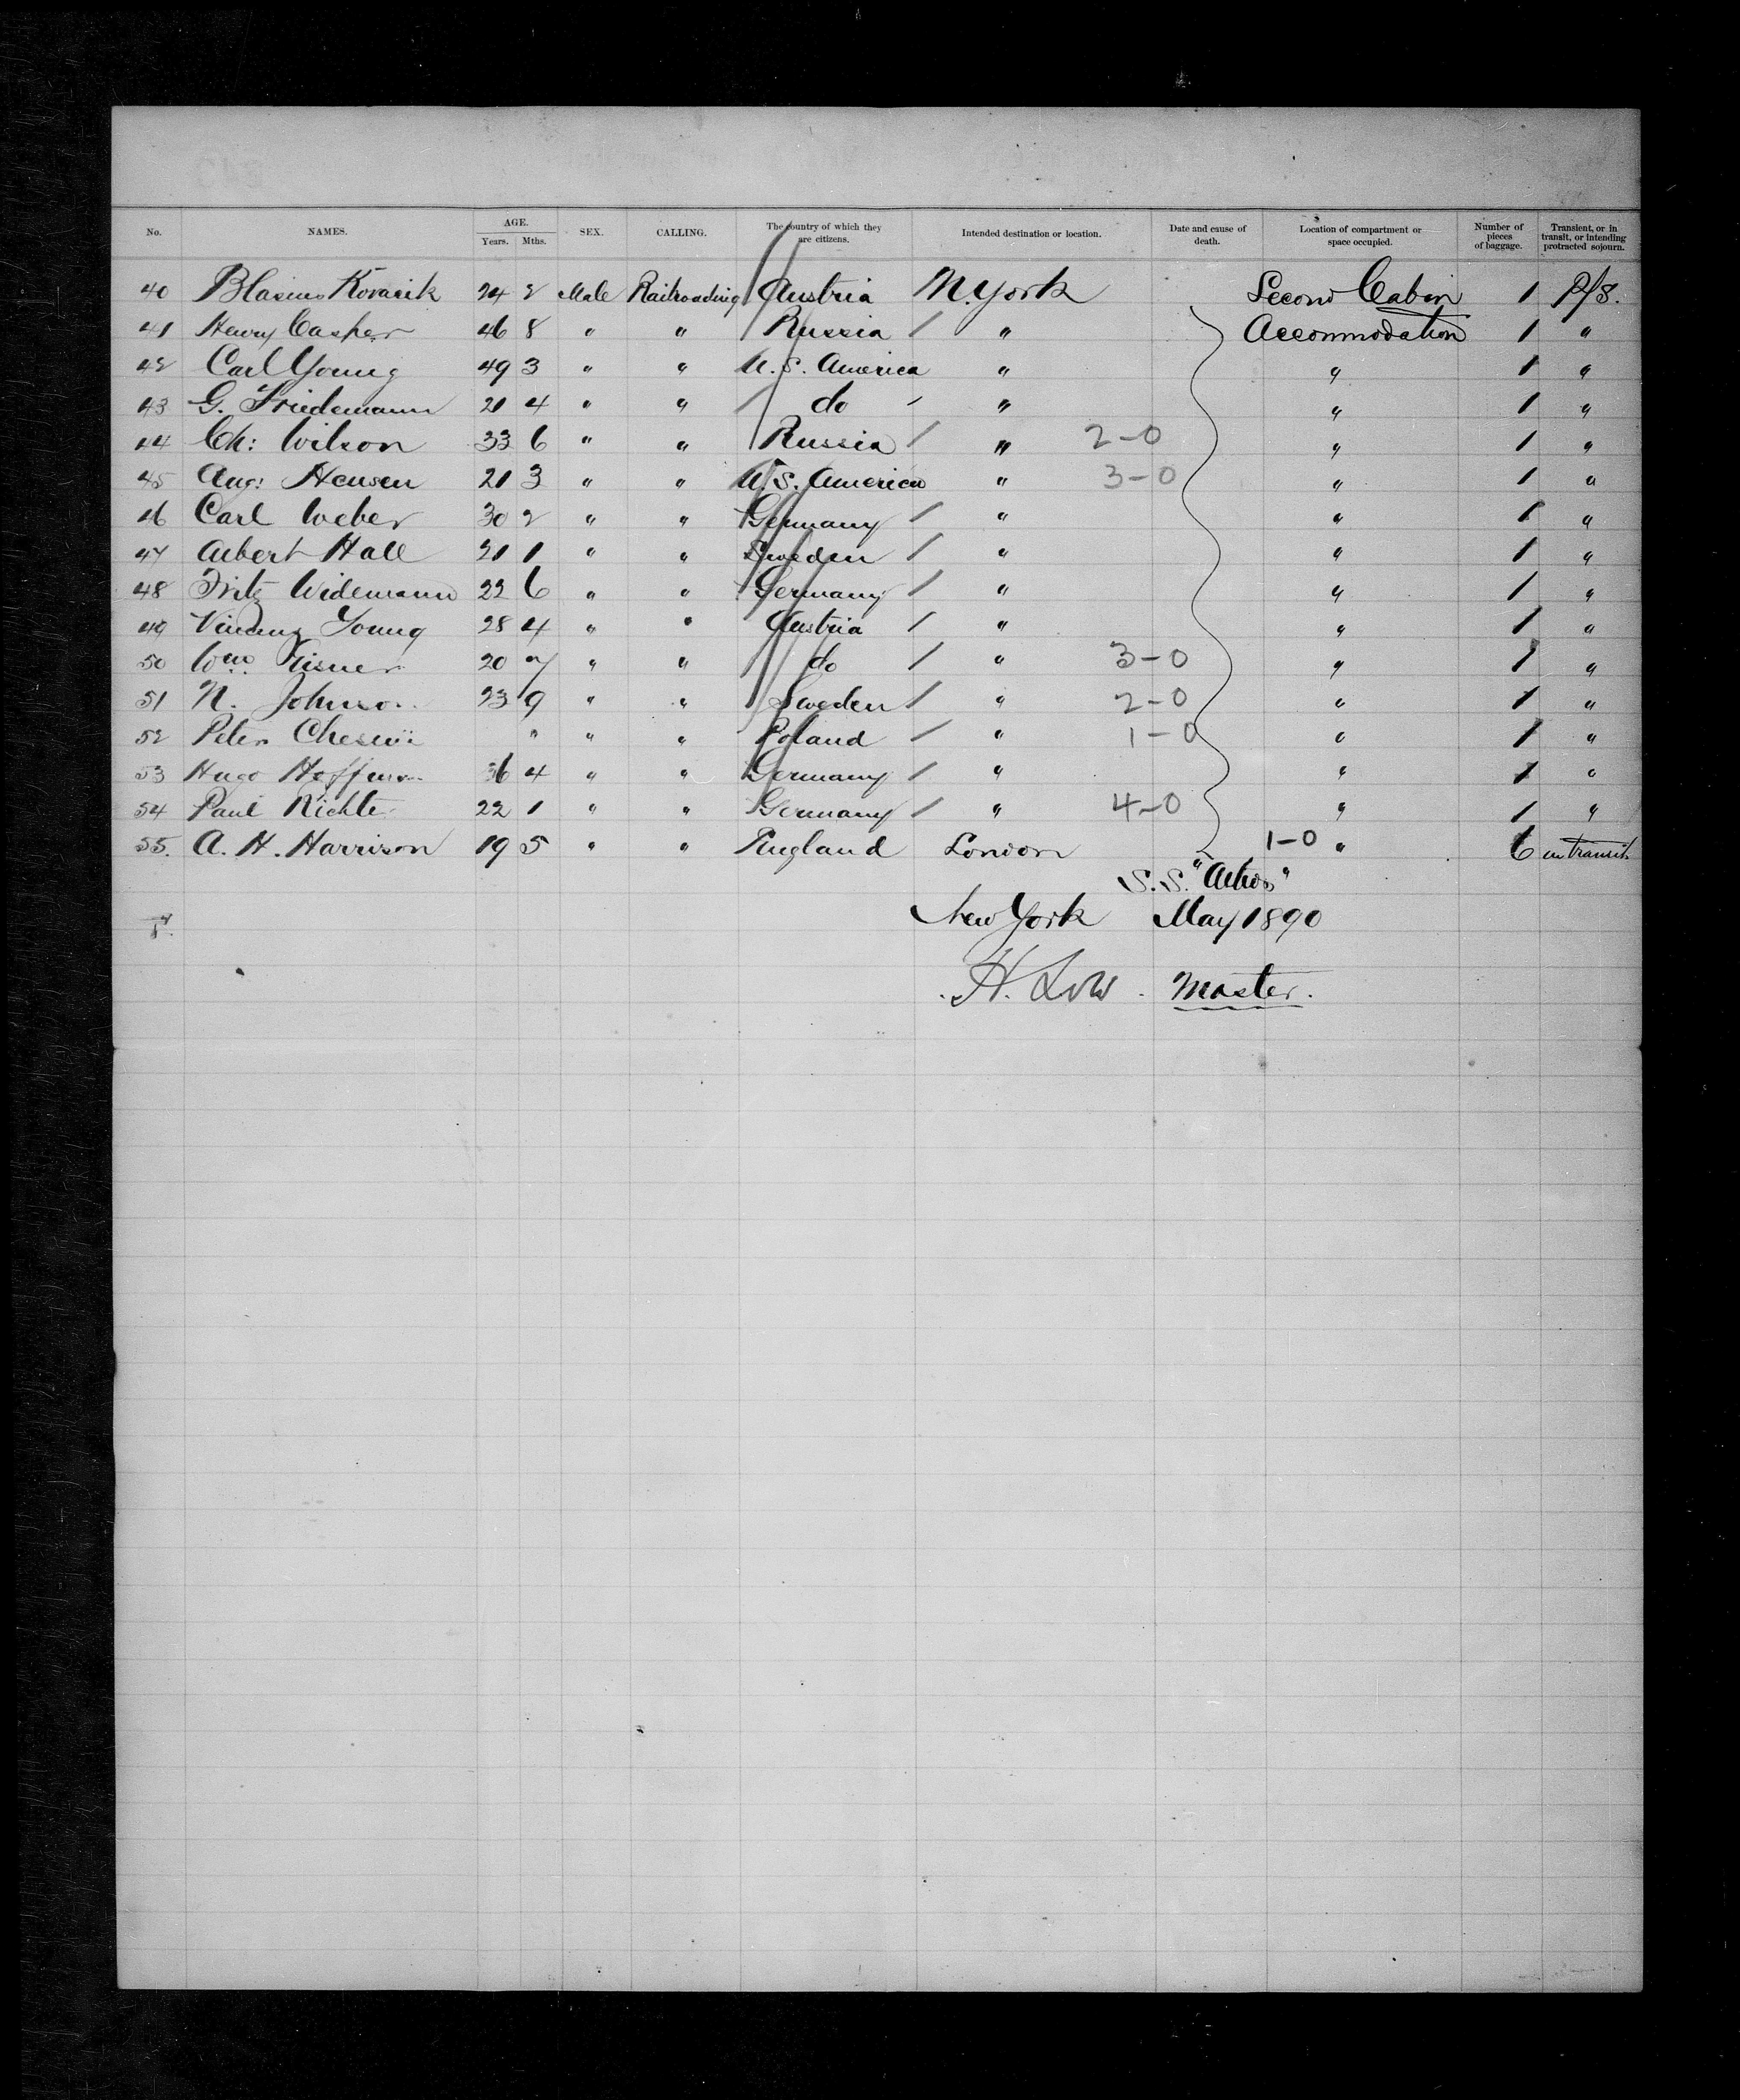 No. NAMES. AGE. Years. Mths. SEX. CALLING. The country of which they are citizens. Intended destination or location. Date and cause of death. Location of compartment or space occupied. Number of pieces of baggage. Transient, or in transit, or intending protracted sojourn.
40 Blasius Kovacik 24 2 Male Railroading Austria N. York Second Cabin 1 P/S.
41 Henry Casher 46 8 " " Russia / " Accommodation 1 "
42 Carl Young 49 3 " " U.S. America " " 1 "
43 G. Friedemann 21 4 " " do " " 1 "
44 Ch: Wilson 33 6 " " Russia / " 2-0 " 1 "
45 Aug: Hensen 21 3 " " U.S. America " 3-0 " 1 "
46 Carl Weber 30 2 " " Germany / " " 1 "
47 Albert Hall 21 1 " " Sweden / " " 1 "
48 Fritz Widemann 22 6 " " Germany / " " 1 "
49 Young 28 4 " " Austria / " " 1 "
50 Wm. 20 7 " " do / " 3-0 " 1 "
51 N. Johnso 23 9 " " Sweden / " 2-0 " 1 "
52 Peter " " " Poland / " 1-0 " 1 "
53 Hugo 36 4 " " Germany / " " 1 "
54 Paul Richte 22 1 " " Germany / " 4-0 " 1 "
55. A. H. Harrison 19 5 " " England London 1-0 " 6 in transit
S.S. "Athos"
New York May 1890
H. Low. Master.